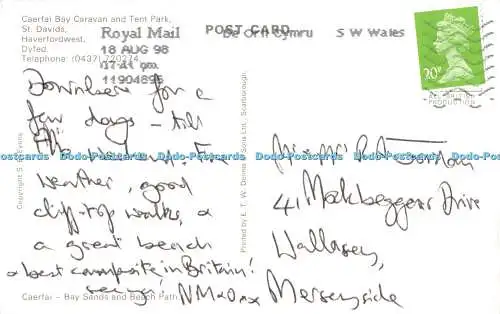 Caerfai Bay Caravan and Tent Park,
St. Davids,
Haverfordwest,
Dyfed.
Telephone: (0437) 720274
Royal Mail
18 AUG 98
11904895
POST CARD
De Orll Cymru
S W Wales
20P
PRODUCTION
Down here for a
few days - till
weather, good
cliff-top walks, a
a great beach
a best campsite in Britain!
Copyright S. Evans
Printed by E. T. W. Dennis Sons Ltd., Scarborough.
41 Mockbeggar Drive
Wallasey,
Merseyside
Caerfai - Bay Sands and Beach Path
postcards Dodo-Postcards Dodo-Postcards Dodo-Postcards Dodo-Postcards Dodo-Postcards